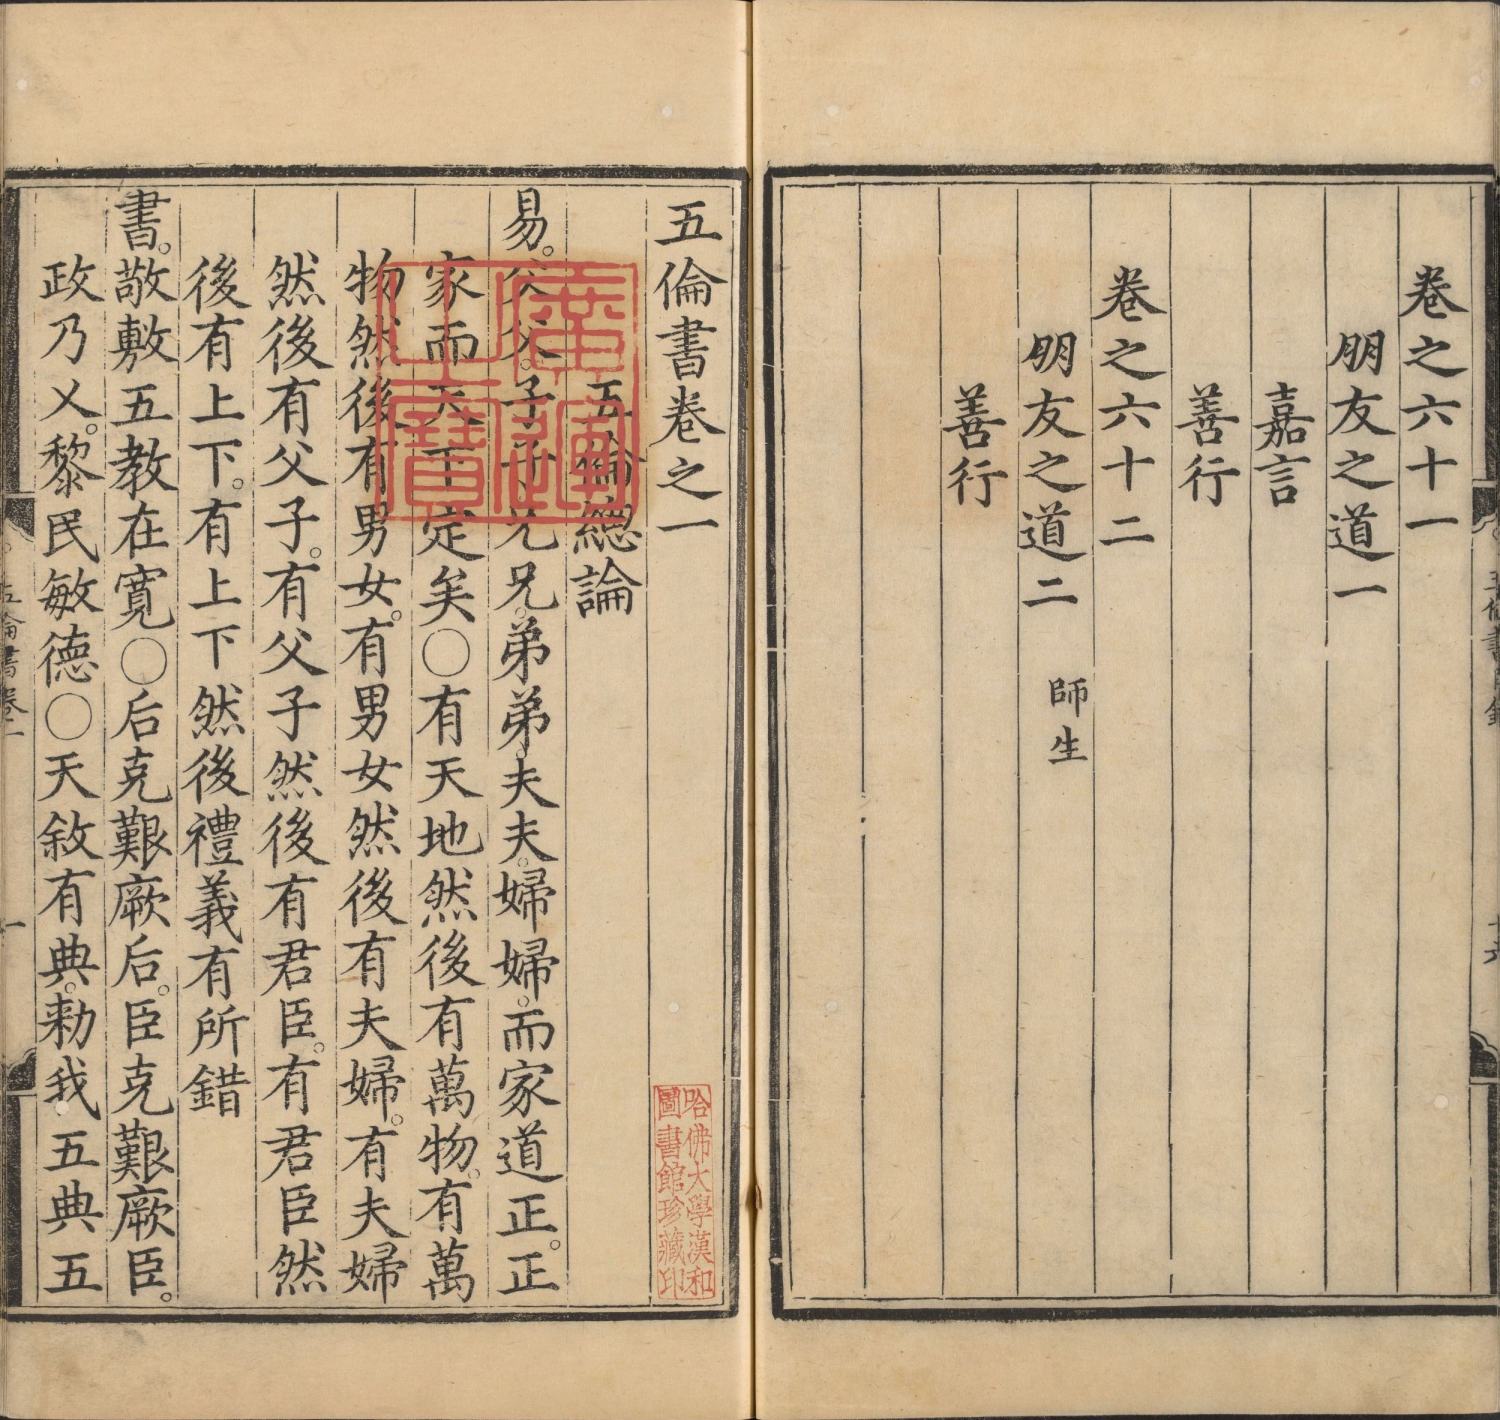 卷之六十一
朋友之道一
嘉言
善行
卷之六十二
朋友之道二 師生
善行
五倫書卷之一
五倫總論
易。父父。子子。兄兄。弟弟。夫夫。婦婦。而家道正。正
家而天下定矣〇有天地然後有萬物。有萬
物然後有男女。有男女然後有夫婦。有夫婦
然後有父子。有父子然後有君臣。有君臣然
後有上下。有上下然後禮義有所錯
書。敬敷五教在寬〇后克艱厥后。臣克艱厥臣。
政乃乂。黎民敏德〇天敘有典。勑我五典五
廣運之寶
哈佛大學漢和圖書館珍藏印
五倫書卷一
一
五倫書目錄
十六